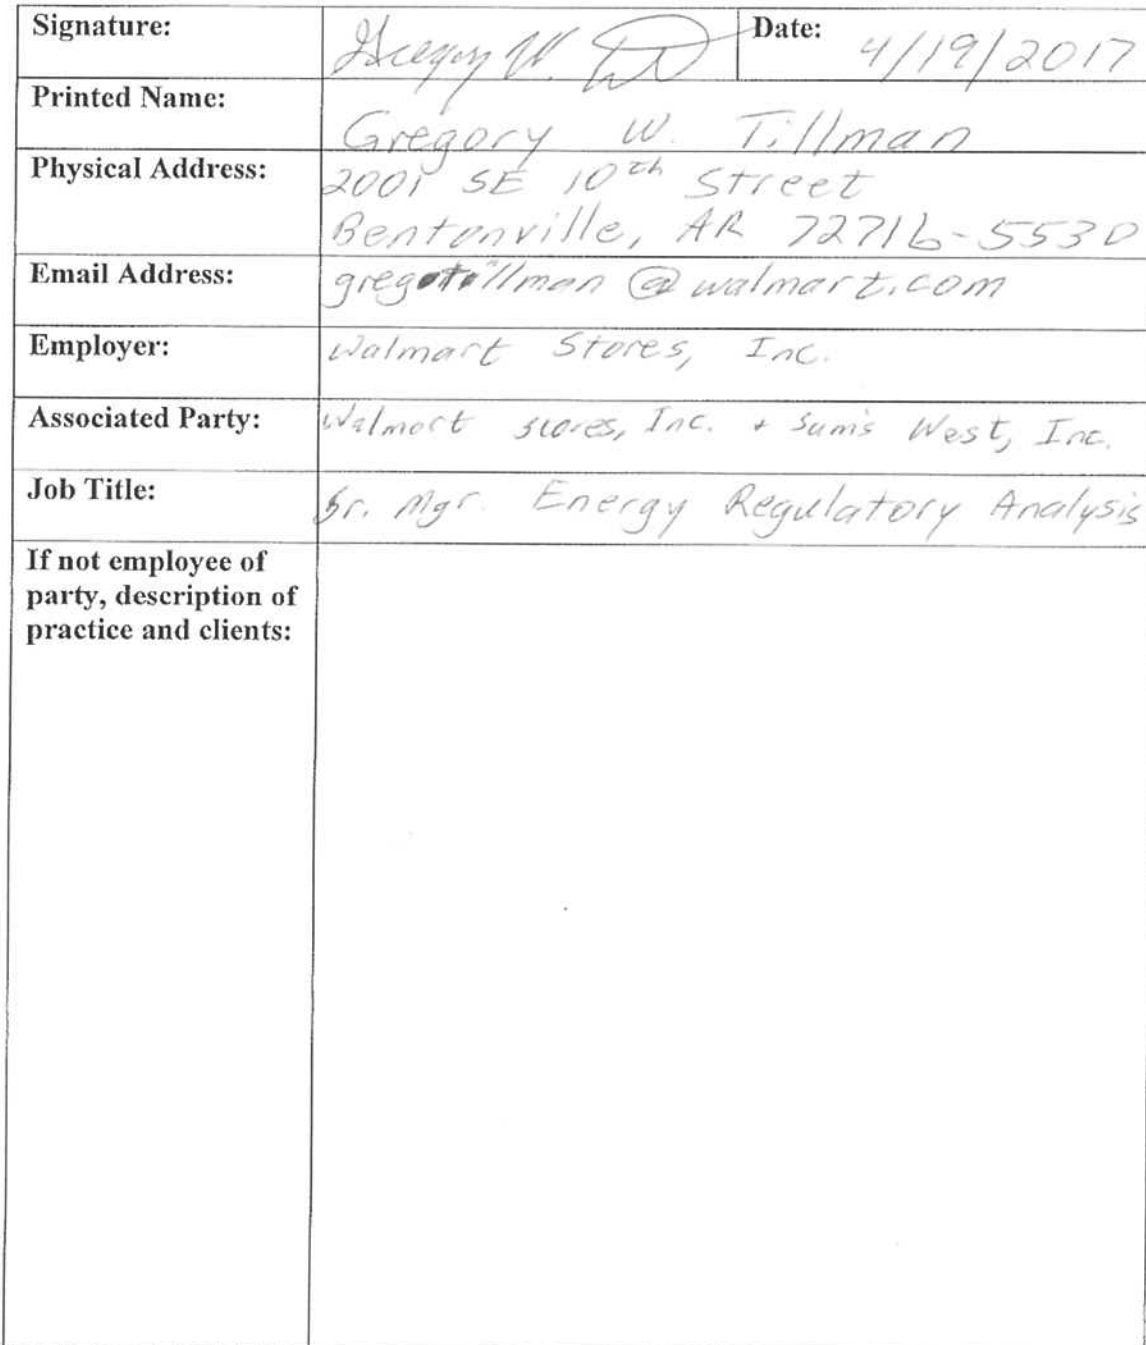 Signature: Gregory W. Date: 4/19/2017
Printed Name: Gregory W. Tillman
Physical Address: 2001 SE 10th Street
Bentonville, AR 72716-5530
Email Address: @walmart.com
Employer: Walmart Stores, Inc.
Associated Party: Walmart stores, Inc. + Sam's West, Inc.
Job Title: Sr. Mgr. Energy Regulatory Analysis
If not employee of
party, description of
practice and clients: